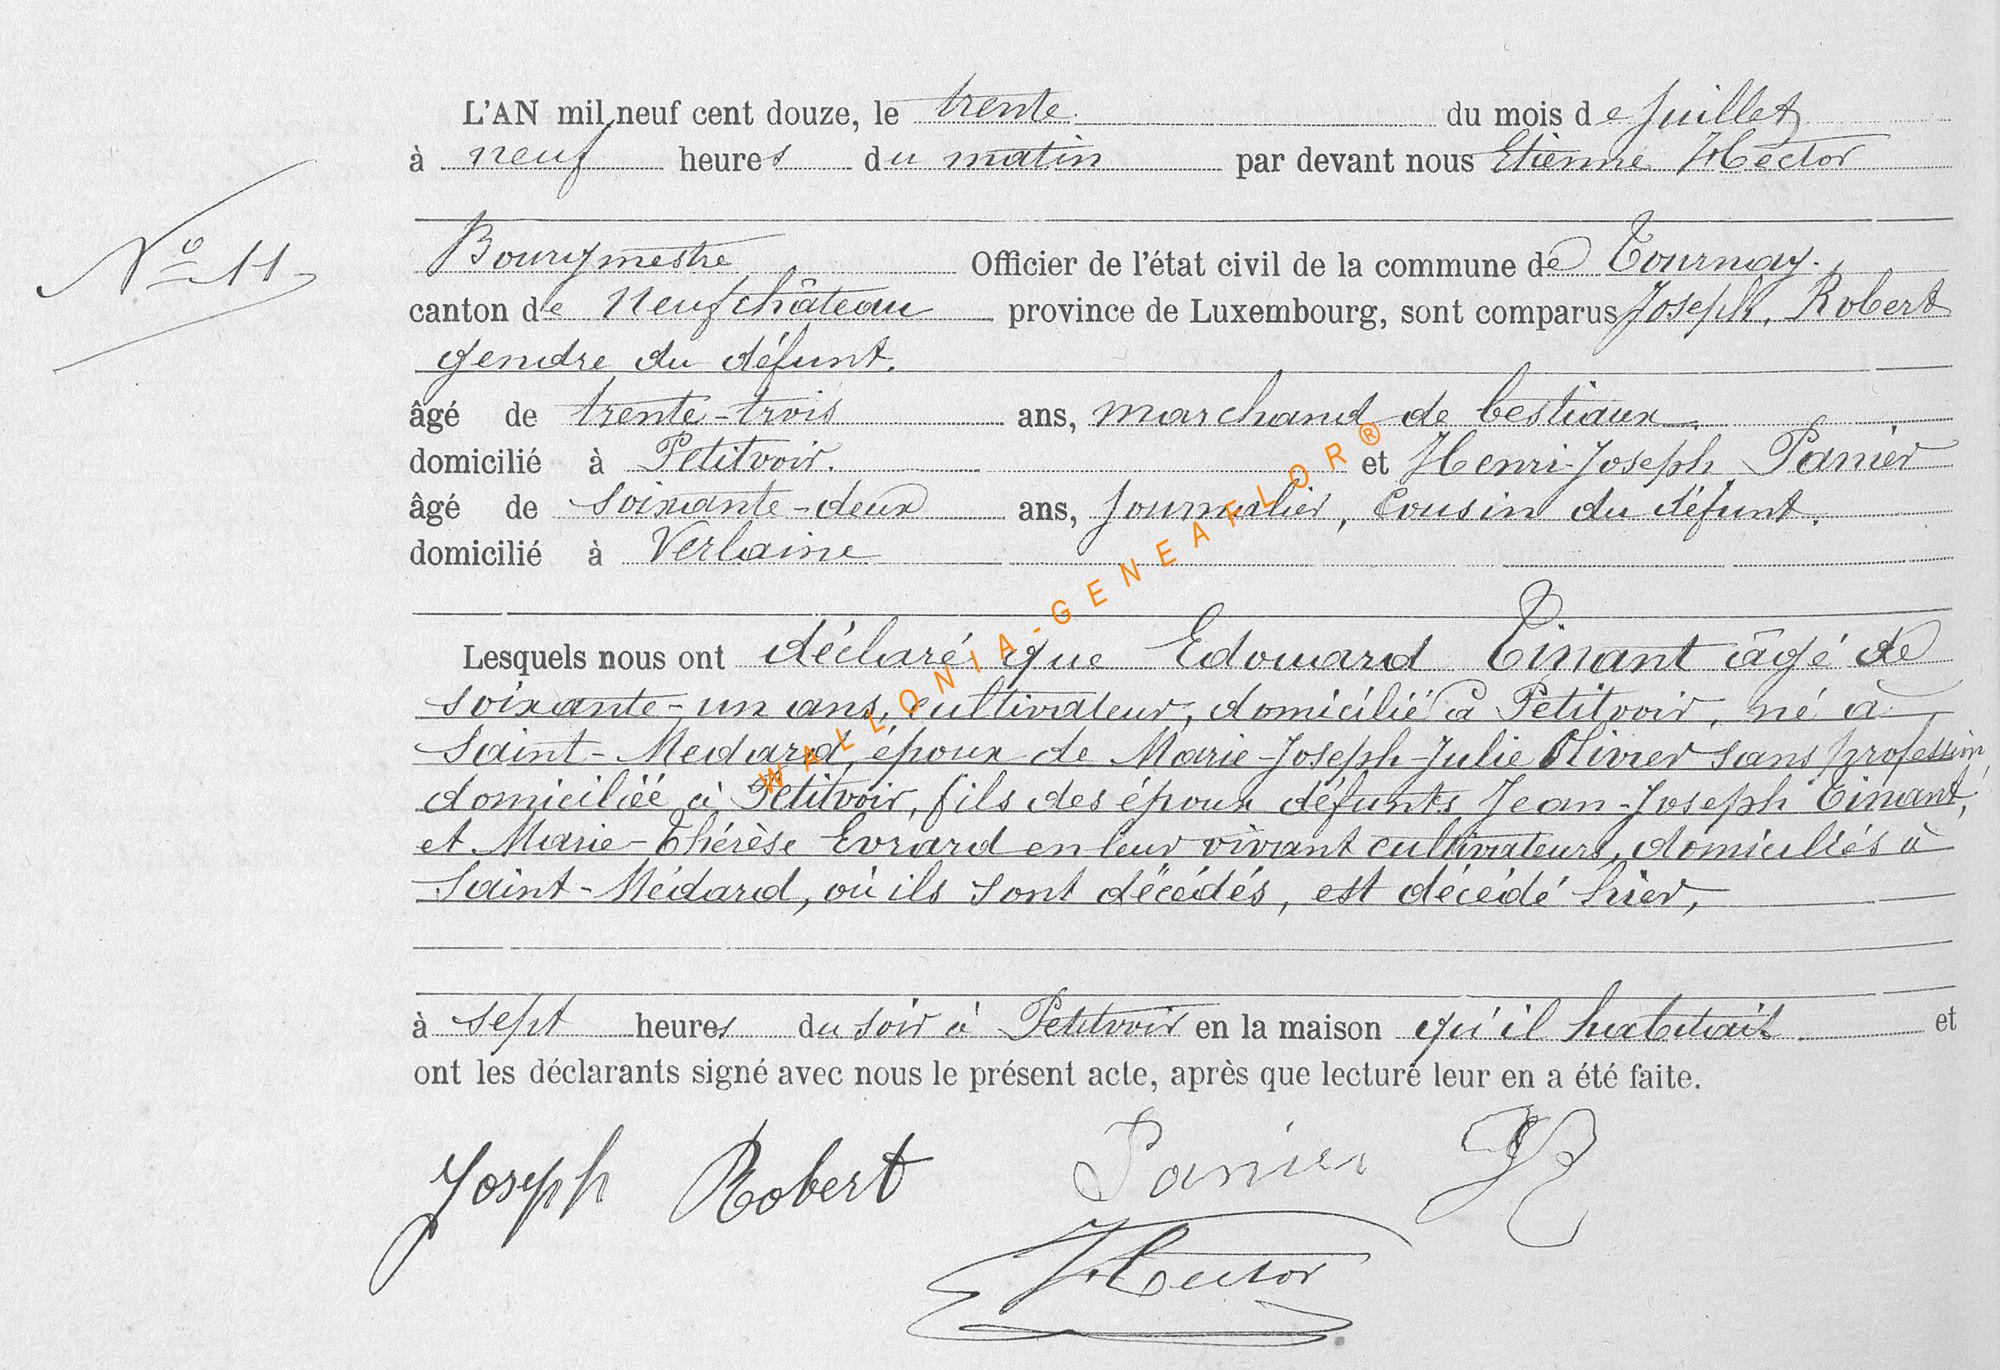 L'AN mil neuf cent douze, le trente du mois de Juillet
à neuf heures du matin par devant nous Etienne Hector
N° 11
Bourgmestre Officier de l'état civil de la commune de Tournay.
canton de Neufchâteau province de Luxembourg, sont comparus Joseph, Robert
gendre du défunt.
âgé de trente-trois ans, marchand de bestiaux.
domicilié à Petitvoir. et Henri-Joseph, Panier
âgé de soixante-deux ans, journalier, cousin du défunt.
domicilié à Verlaine
Lesquels nous ont déclaré que Edouard Tinant âgé de
soixante-un ans, cultivateur, domicilié à Petitvoir, né à
Saint-Médard, époux de Marie-Joseph-Julie Olivier sans profession,
domiciliée à Petitvoir, fils des époux défunts Jean-Joseph Tinant,
et Marie-Thérèse Evrard en leur vivant cultivateurs, domiciliés à
Saint-Médard, où ils sont décédés, est décédé hier,
à sept heures du soir à Petitvoir en la maison qu'il habitait. et
ont les déclarants signé avec nous le présent acte, après que lecture leur en a été faite.
Joseph Robert Panier
Hector
WALLONIA-GENEAFLOR®